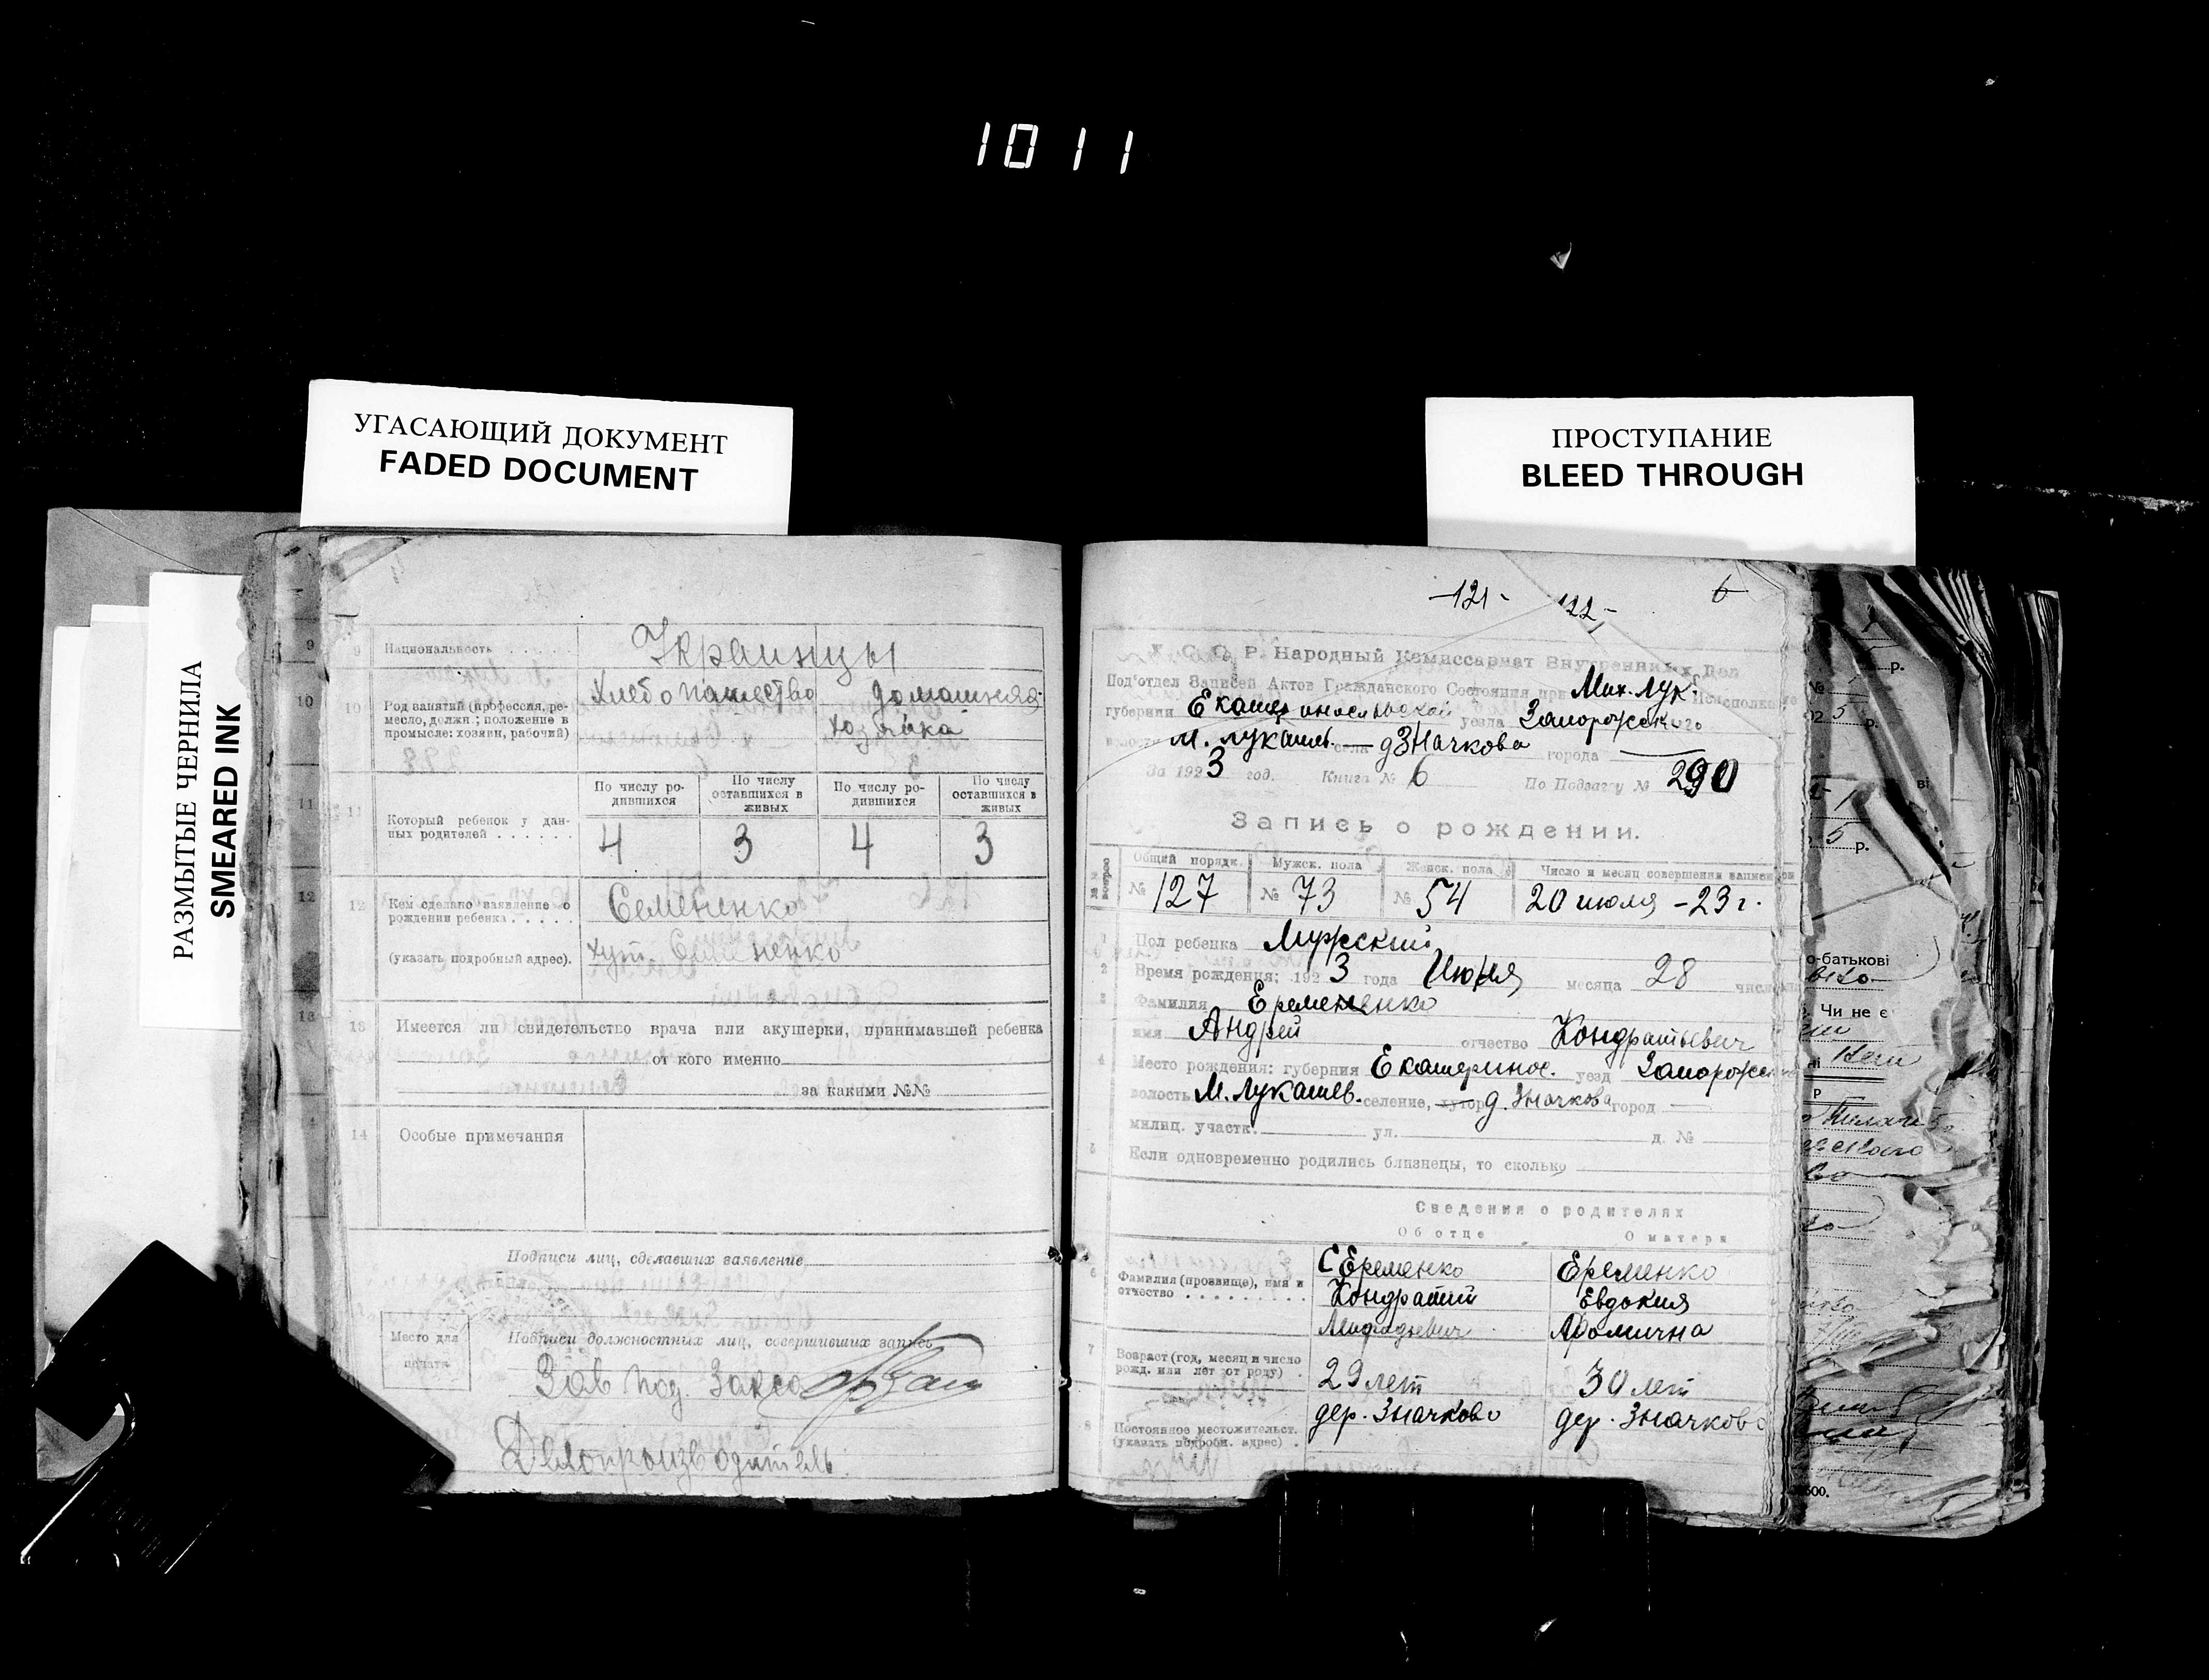 1011
УГАСАЮЩИЙ ДОКУМЕНТ
FADED DOCUMENT
ПРОСТУПАНИЕ
BLEED THROUGH
РАЗМЫТЫЕ ЧЕРНИЛА
SMEARED INK
9 Национальность . . . . . Украинцы
10 Род занятий (профессия, ре-
месло, должн; положение в
промысле: хозяин, рабочий)
Хлебопашество
домашняя
хозяйка
11 Который ребенок у дан-
ных родителей . . . . . .
По числу ро-
дившихся
По числу
оставшихся в
живых
По числу ро-
дившихся
По числу
оставшихся в
живых
4 3 4 3
12 Кем сделано заявление о
рождении ребенка . . . . .
Семененко
(указать подробный адрес). хут. Семененко
13 Имеется ли свидетельство врача или акушерки, принимавшей ребенка
от кого именно
за какими №№
14 Особые примечания
Подписи лиц, сделавших заявление
Место для
печати
Подписи должностных лиц, совершивших запись
Зав под. Загса
Делопроизводитель
-121- 122- 6
У. С. С. Р. Народный Комиссариат Внутренних Дел
Под'отдел Записей Актов Гражданского Состояния при Мих-Лук.
губернии Екатеринославской уезда Запорожского
М. Лукашев. села д Значкова города
За 1923 год. Книга № 6 По Подзагсу № 290
Запись о рождении.
Общий порядк. Мужск. пола Женск. пола Число и месяц совершения записи
№ 127 № 73 № 54 20 июля -23 г.
1 Пол ребенка Мужской
2 Время рождения: 1923 года Июня месяца 28 числа
3 Фамилия Еремененко
имя Андрей отчество Кондратьевич
4 Место рождения: губерния Екатеринос. уезд Запорожск
волость М. Лукашев. селение, хутор д. Значкова город
милиц. участк. ул. д. №
5 Если одновременно родились близнецы, то сколько
Сведения о родителях
Об отце О матери
6 Фамилия (прозвище), имя и
отчество . . . . . . . . .
Еременко
Кондратий
Еременко
Евдокия
Афомична
7 Возраст (год, месяц и число
рожд. или лет от роду) .
29 лет 30 лет
8 Постоянное местожительст.
(указать подробн. адрес) .
дер. Значково дер. Значково
р.
№
5 р.
ві
5 р.
о-батькові
Чи не є
500.